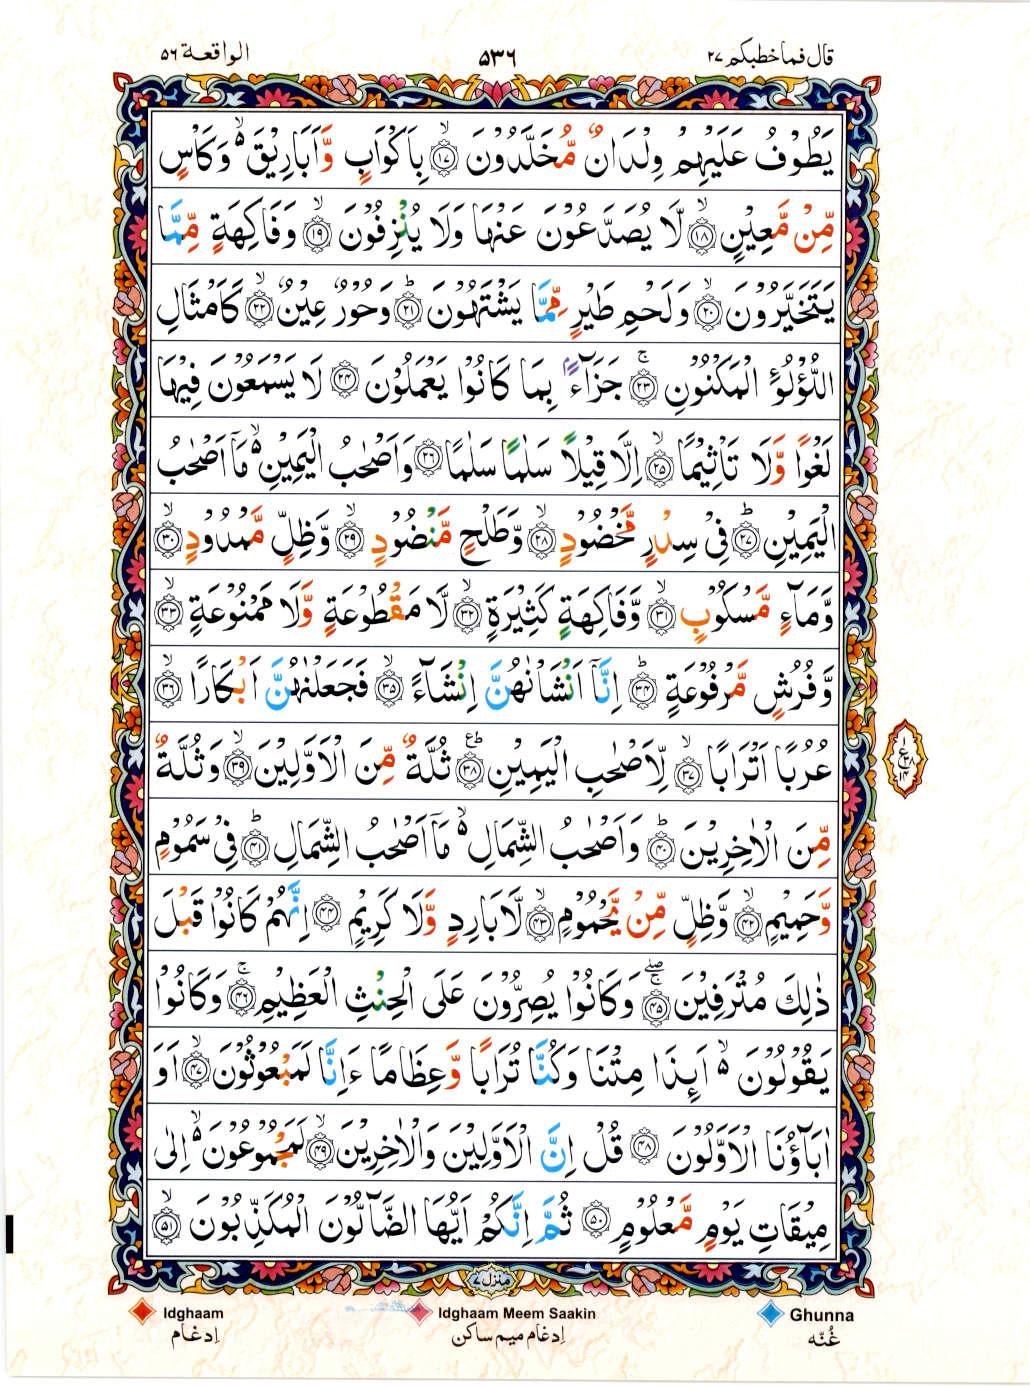 قال فما خطبکم ٢٧
٥٣٦
الواقعة ٥٦
يَطُوْفُ عَلَيْهِمْ وِلْدَانٌ مُّخَلَّدُوْنَ ۙ‏﴿١٧﴾ بِاَكْوَابٍ وَّاَبَارِيْقَ ۙ وَكَاْسٍ
مِّنْ مَّعِيْنٍ ۙ‏﴿١٨﴾ لَّا يُصَدَّعُوْنَ عَنْهَا وَلَا يُنْزِفُوْنَ ۙ‏﴿١٩﴾ وَفَاكِهَةٍ مِّمَّا
يَتَخَيَّرُوْنَ ۙ‏﴿٢٠﴾ وَلَحْمِ طَيْرٍ مِّمَّا يَشْتَهُوْنَ ؕ‏﴿٢١﴾ وَحُوْرٌ عِيْنٌ ۙ‏﴿٢٢﴾ كَاَمْثَالِ
اللُّؤْلُوٴِ الْمَكْنُوْنِ ۚ‏﴿٢٣﴾ جَزَآءًۢ بِمَا كَانُوْا يَعْمَلُوْنَ ﴿٢٤﴾ لَا يَسْمَعُوْنَ فِيْهَا
لَغْوًا وَّلَا تَاْثِيْمًا ۙ‏﴿٢٥﴾ اِلَّا قِيْلًا سَلٰمًا سَلٰمًا ﴿٢٦﴾ وَاَصْحٰبُ الْيَمِيْنِ ۙ مَاۤ اَصْحٰبُ
الْيَمِيْنِ ؕ‏﴿٢٧﴾ فِىْ سِدْرٍ مَّخْضُوْدٍ ۙ‏﴿٢٨﴾ وَّطَلْحٍ مَّنْضُوْدٍ ۙ‏﴿٢٩﴾ وَّظِلٍّ مَّمْدُوْدٍ ۙ‏﴿٣٠﴾
وَّمَآءٍ مَّسْكُوْبٍ ۙ‏﴿٣١﴾ وَّفَاكِهَةٍ كَثِيْرَةٍ ۙ‏﴿٣٢﴾ لَّا مَقْطُوْعَةٍ وَّلَا مَمْنُوْعَةٍ ۙ‏﴿٣٣﴾
وَّفُرُشٍ مَّرْفُوْعَةٍ ؕ‏﴿٣٤﴾ اِنَّاۤ اَنْشَاْنٰهُنَّ اِنْشَآءً ۙ‏﴿٣٥﴾ فَجَعَلْنٰهُنَّ اَبْكَارًا ۙ‏﴿٣٦﴾
عُرُبًا اَتْرَابًا ۙ‏﴿٣٧﴾ لِّاَصْحٰبِ الْيَمِيْنِ ؕ‏﴿٣٨﴾ ثُلَّةٌ مِّنَ الْاَوَّلِيْنَ ۙ‏﴿٣٩﴾ وَثُلَّةٌ
مِّنَ الْاٰخِرِيْنَ ؕ‏﴿٤٠﴾ وَاَصْحٰبُ الشِّمَالِ ۙ مَاۤ اَصْحٰبُ الشِّمَالِ ؕ‏﴿٤١﴾ فِىْ سَمُوْمٍ
وَّحَمِيْمٍ ۙ‏﴿٤٢﴾ وَّظِلٍّ مِّنْ يَّحْمُوْمٍ ۙ‏﴿٤٣﴾ لَّا بَارِدٍ وَّلَا كَرِيْمٍ ﴿٤٤﴾ اِنَّهُمْ كَانُوْا قَبْلَ
ذٰلِكَ مُتْرَفِيْنَ ۚۖ‏﴿٤٥﴾ وَكَانُوْا يُصِرُّوْنَ عَلَى الْحِنْثِ الْعَظِيْمِ ۚ‏﴿٤٦﴾ وَكَانُوْا
يَقُوْلُوْنَ ۙ اَىِٕذَا مِتْنَا وَكُنَّا تُرَابًا وَّعِظَامًا ءَاِنَّا لَمَبْعُوْثُوْنَ ۙ‏﴿٤٧﴾ اَوَ
اٰبَآؤُنَا الْاَوَّلُوْنَ ﴿٤٨﴾ قُلْ اِنَّ الْاَوَّلِيْنَ وَالْاٰخِرِيْنَ ۙ‏﴿٤٩﴾ لَمَجْمُوْعُوْنَ ۙ اِلٰى
مِيْقَاتِ يَوْمٍ مَّعْلُوْمٍ ﴿٥٠﴾ ثُمَّ اِنَّكُمْ اَيُّهَا الضَّآلُّوْنَ الْمُكَذِّبُوْنَ ۙ‏﴿٥١﴾
منزل ٧
Idghaam
Idghaam Meem Saakin
Ghunna
اِدغام
اِدغام میم ساکن
غُنّه